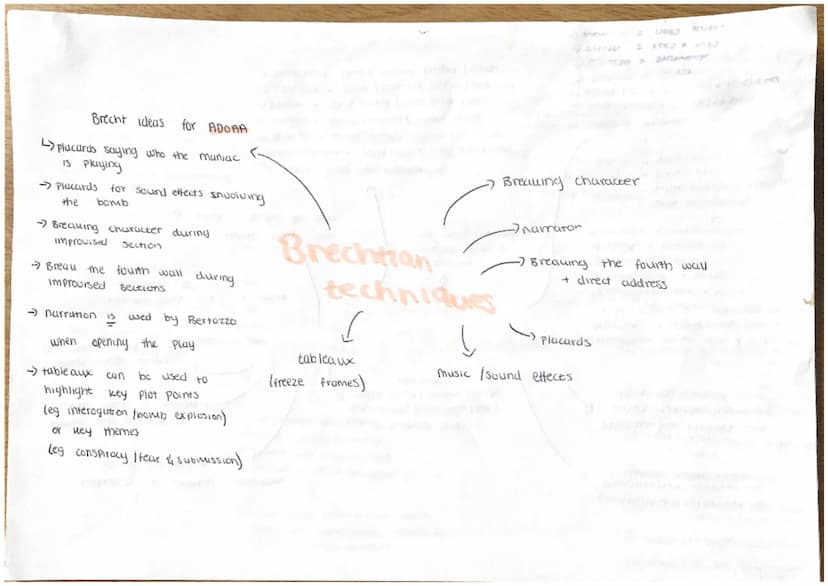 Brecht ideas for ADOAA
↳ placards saying who the maniac
is playing
→ placards for sound effects involving
the bomb
→ Breaking character during
improvised section
→ Break the fourth wall during
improvised sections
→ narration is used by Bertozzo
when opening the play
→ tableaux can be used to
highlight key plot points
(eg interogation /bomb explosion)
or key themes
(eg conspiracy /fear & submission)
Brechtian
techniques
→ Breaking character
→ narrator
→ Breaking the fourth wall
+ direct address
→ placards
music /sound effects
tableaux
(freeze frames)